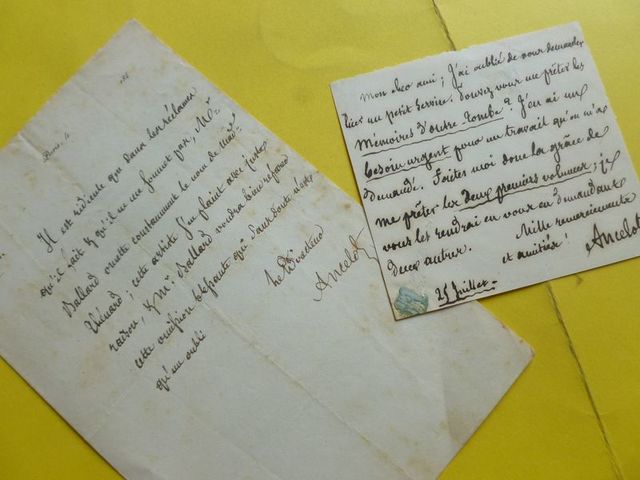 Paris, le 185
Il est evidente que dans les réclames
qu'il fait & qu'il ne me fournit pas, Mr
Ballard omette constamment le nom de Mad.
Thénard ; cette artiste s'en plaint avec juste
raison, & Mr. Ballard voudra bien réparer
cette omission blessante qui, sans doute, n'est
qu'un oubli
Le Directeur
Ancelot
Mon cher ami ; j'ai oublié de vous demander
hier un petit service. Pouvez vous me prêter les
Mémoires d'outre tombe ? J'en ai un
besoin urgent pour un travail qu'on m'a
demandé. Faites moi donc la grâce de
me prêter les deux premiers volumes ; je
vous les rendrai en vous en demandant
deux autres. Mille remerciements
et amitiés !
Ancelot
25 Juillet.